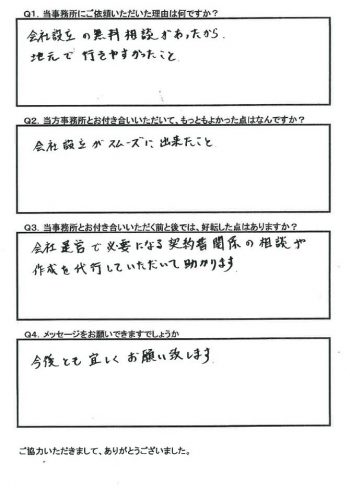 Q1．当事務所にご依頼いただいた理由は何ですか？
会社設立の無料相談があったから
地元で行きやすかったこと
Q2．当方事務所とお付き合いいただいて、もっともよかった点はなんですか？
会社設立がスムーズに出来たこと
Q3．当事務所とお付き合いいただく前と後では、好転した点はありますか？
会社運営で必要になる契約書関係の相談や
作成を代行していただいて助かります
Q4．メッセージをお願いできますでしょうか
今後とも宜しくお願い致します
ご協力いただきまして、ありがとうございました。